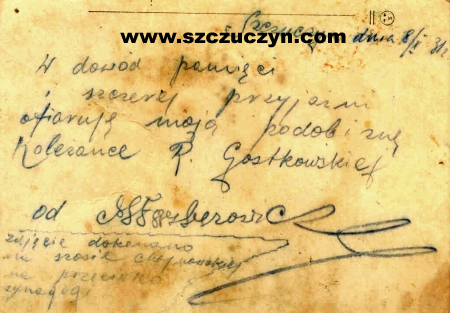 Szczuczyn dnia 8/I 31 r.
www.szczuczyn.com
W dowód pamięci
i szczerej przyjaźni
ofiaruję moją podobiznę
Koleżance R. Gostkowskiej
od
zdjęcie dokonano
na szosie
na przeciwko
synagogi